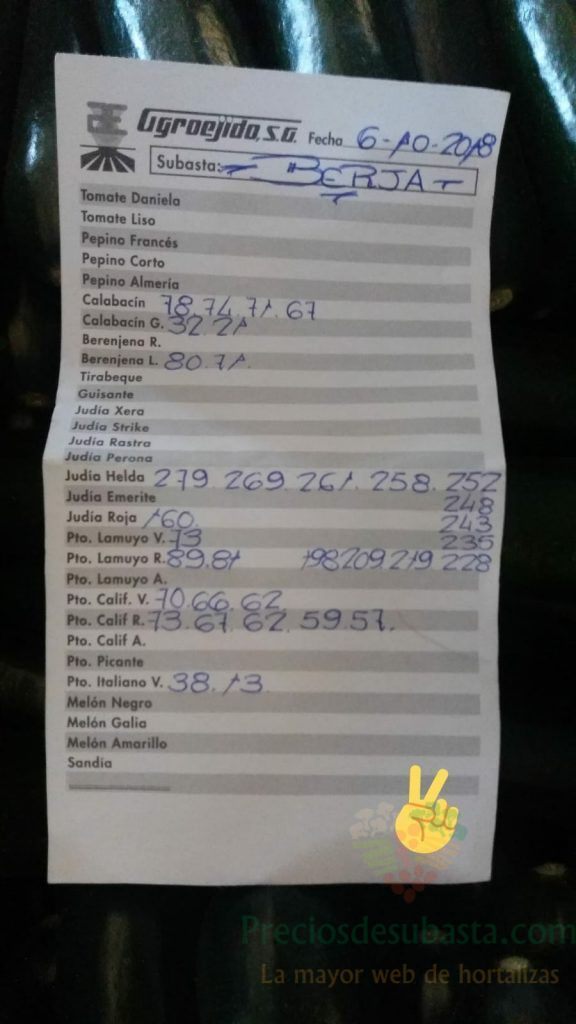 Agroejido, S.A. Fecha 6-10-2018
Subasta: BERJA
Tomate Daniela
Tomate Liso
Pepino Francés
Pepino Corto
Pepino Almería
Calabacín 78.74.71.67
Calabacín G. 32.21
Berenjena R.
Berenjena L. 80.71.
Tirabeque
Guisante
Judía Xera
Judía Strike
Judía Rastra
Judía Perona
Judía Helda 279.269.261.258.252
Judía Emerite 248
Judía Roja 160. 243
Pto. Lamuyo V. 73 235
Pto. Lamuyo R. 89.81 198209.219 228
Pto. Lamuyo A.
Pto. Calif. V. 70.66.62
Pto. Calif R. 73.67.62.59.57.
Pto. Calif A.
Pto. Picante
Pto. Italiano V. 38.13
Melón Negro
Melón Galia
Melón Amarillo
Sandía
Preciosdesubasta.com
La mayor web de hortalizas